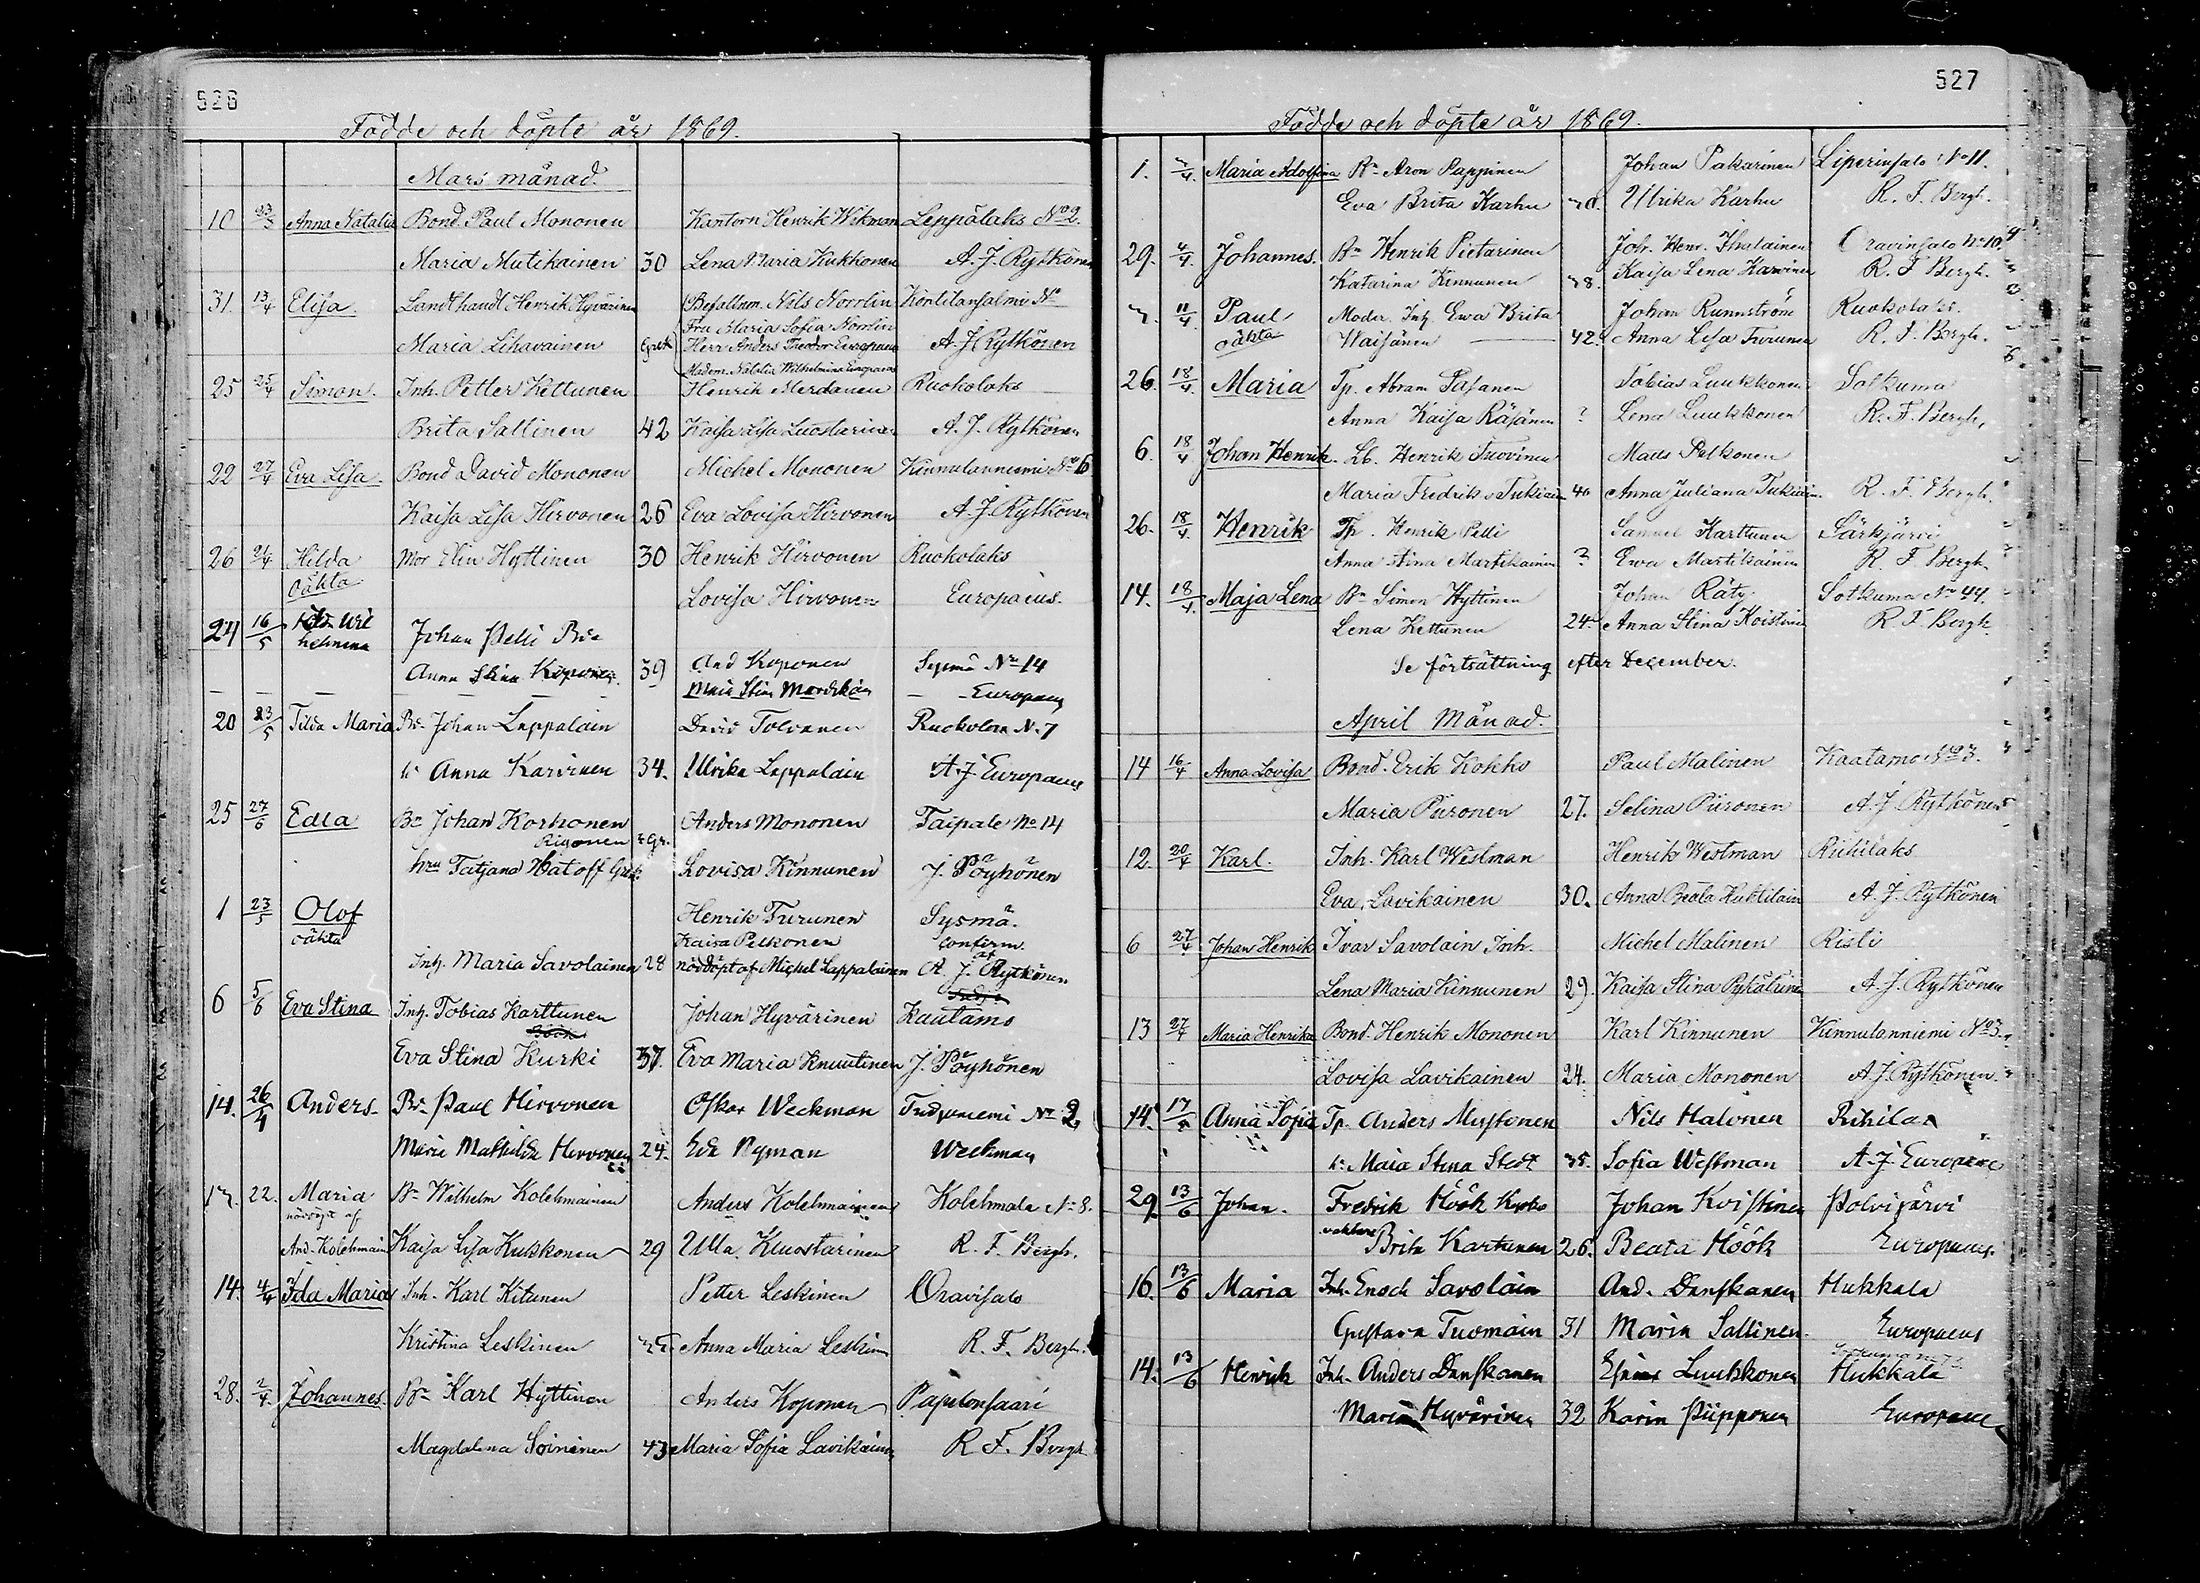 526
Födde och döpte år 1869.
Mars månad.
10 23/3 Anna Natalia Bond. Paul Mononen Kantorn Henrik Wikman Leppälaks No 2.
Maria Mutikainen 30 Lena Maria Kukkonen A. J. Rytkönen
31. 13/4 Elisa. Landthandl Henrik Hyvärinen Befallnm. Nils Norrlin Kontilansalmi No
Fru Maria Sofia Norrlin
Maria Lihavainen Grek Herr Anders Theodor Europaeus A. J. Rytkönen
Madem. Natalia Wilhelmina Europaeus
25 25/4 Simon. Inh. Petter Kettunen Henrik Merdanen Ruokolaks
Brita Sallinen 42 Kaisa Lisa Luostarinen A. J. Rytkönen
22 27/4 Eva Lisa. Bond David Mononen Michel Mononen Kinnulanniemi No 6
Kaisa Lisa Hirvonen 26 Eva Lovisa Hirvonen A. J. Rytkönen
26 21/4 Hilda Mor Elin Hyttinen 30 Henrik Hirvonen Ruokolaks
oäkta Lovisa Hirvonen Europaeus.
24 16/5 Wilhelmina Johan Pelli Bde
Anna Stina Koponen. 39 And Koponen Sysmä No 14
Maria Stina Martikain Europaeus
20 23/5 Tilda Maria Bd. Johan Leppalain David Tolvanen Ruokolax N. 7
h. Anna Karvinen 34. Ulrika Leppalain A. J. Europaeus
25 27/6 Edla Bn Johan Korhonen Anders Mononen Taipale No 14
Rigonen
hru Tatjana Hatoff Grek. Lovisa Kinnunen J. Pöyhönen
1 23/5 Olof Henrik Turunen Sysmä.
oäkta Kaisa Pelkonen confirm.
af
Inh. Maria Savolainen 28 nöddöpt af Michel Lappalainen A. J. Rytkönen
6 5/6 Eva Stina Inh. Tobias Karttunen Johan Hyvärinen Kautamo
Eva Stina Kurki 37. Eva Maria Knuutinen J. Pöyhönen
14. 26/4 Anders. Bd. Paul Hirvonen Oskar Weckman Tudpniemi No 2,
Maria Mathilda Hirvonen 24. Eda Nyman Weckman
17. 22. Maria Bn Wilhelm Kolehmainen Anders Kolehmainen Kolehmala No 8.
nöddöpt af
And. Kolehmain Kaisa Lisa Kukkonen 29 Ulla Kluostarinen R. F. Bergh.
14. 4/4 Ida Maria Inh. Karl Kitunen Petter Leskinen Oravisalo
Kristina Leskinen 35. Anna Maria Leskinen R. F. Bergh.
28. 2/4. Johannes. Bn Karl Hyttinen Anders Koponen Papelonsaari
Magdalena Soininen 43 Maria Sofia Lavikainen R. F. Bergh
527
Födde och döpte år 1869.
1. 2/4. Maria Adolfina Bn Aron Pappinen Johan Pakarinen Liperinsalo No 11.
Eva Brita Karhu 30. Ulrika Karhu R. F. Bergh.
29. 4/4 Johannes. Bn Henrik Pietarinen Joh. Henr. Ihalainen Oravinsalo No 10.
Katarina Kinnunen 38. Kaisa Lena Karvinen R. F. Bergh.
7. 11/4. Paul Moder. Inh. Ewa Brita Johan Runnström Ruokolaks.
oäkta Waisänen 42. Anna Lisa Turunen R. F. Bergh.
26. 18/4. Maria Tp. Abram Sasanen Tobias Luukkonen Sotkuma
Anna Kaisa Räsänen ? Lena Luukkonen R. F. Bergh,
6. 18/4 Johan Henrik. Lb. Henrik Tuovinen Mats Pelkonen
Maria Fredrika Tukiain 40 Anna Juliana Tukiain. R. F. Bergh.
26. 18/4. Henrik Tp. Henrik Pelli Samuel Karttunen Särkjärvi
Anna Stina Martikainen ? Ewa Martikainen R. F. Bergh.
14. 18/4. Maja Lena Bn Simon Hyttinen Johan Räty Sotkuma No 44.
Lena Kettunen 24. Anna Stina Koistinen R. F. Bergh.
Se förtsättning efter December.
April Månad.
14 16/4 Anna Lovisa Bond. Erik Kokko Paul Malinen Kaatamo No 3.
Maria Piironen 27. Selina Piironen A. J. Rytkönen
12. 20/4 Karl. Inh. Karl Westman Henrik Westman Riihilaks
Eva Lavikainen 30. Anna Beata Huktilain A. J. Rytkönen
6 27/4 Johan Henrik Ivar Savolain Inh. Michel Malinen Risti
Lena Maria Kinnunen 29. Kaisa Stina Pykäläinen A. J. Rytkönen
13 27/4 Maria Henrika Bond. Henrik Mononen Karl Kinnunen Kinnulanniemi No 3.
Lovisa Lavikainen 24. Maria Mononen A. J. Rytkönen.
14. 17/5 Anna Sofia Tp. Anders Mustonen Nils Halonen Riihilax
h. Maia Stina Stedt 35. Sofia Westman A. J. Europaeus
29. 13/6 Johan. Fredrik Höök Johan Koistinen Polvijärvi
Brita Kartunen 26. Beata Höök Europaeus.
16. 13/6 Maria Inh. Enoch Savolain And. Danskanen Hukkala
Gustava Tuomain 31 Maria Sallinen. Europaeus
14. 13/6 Henrik Inh. Anders Danskanen Luukkonen Hukkala
Maria Hyvärinen 32 Karin Piipponen Europaeus